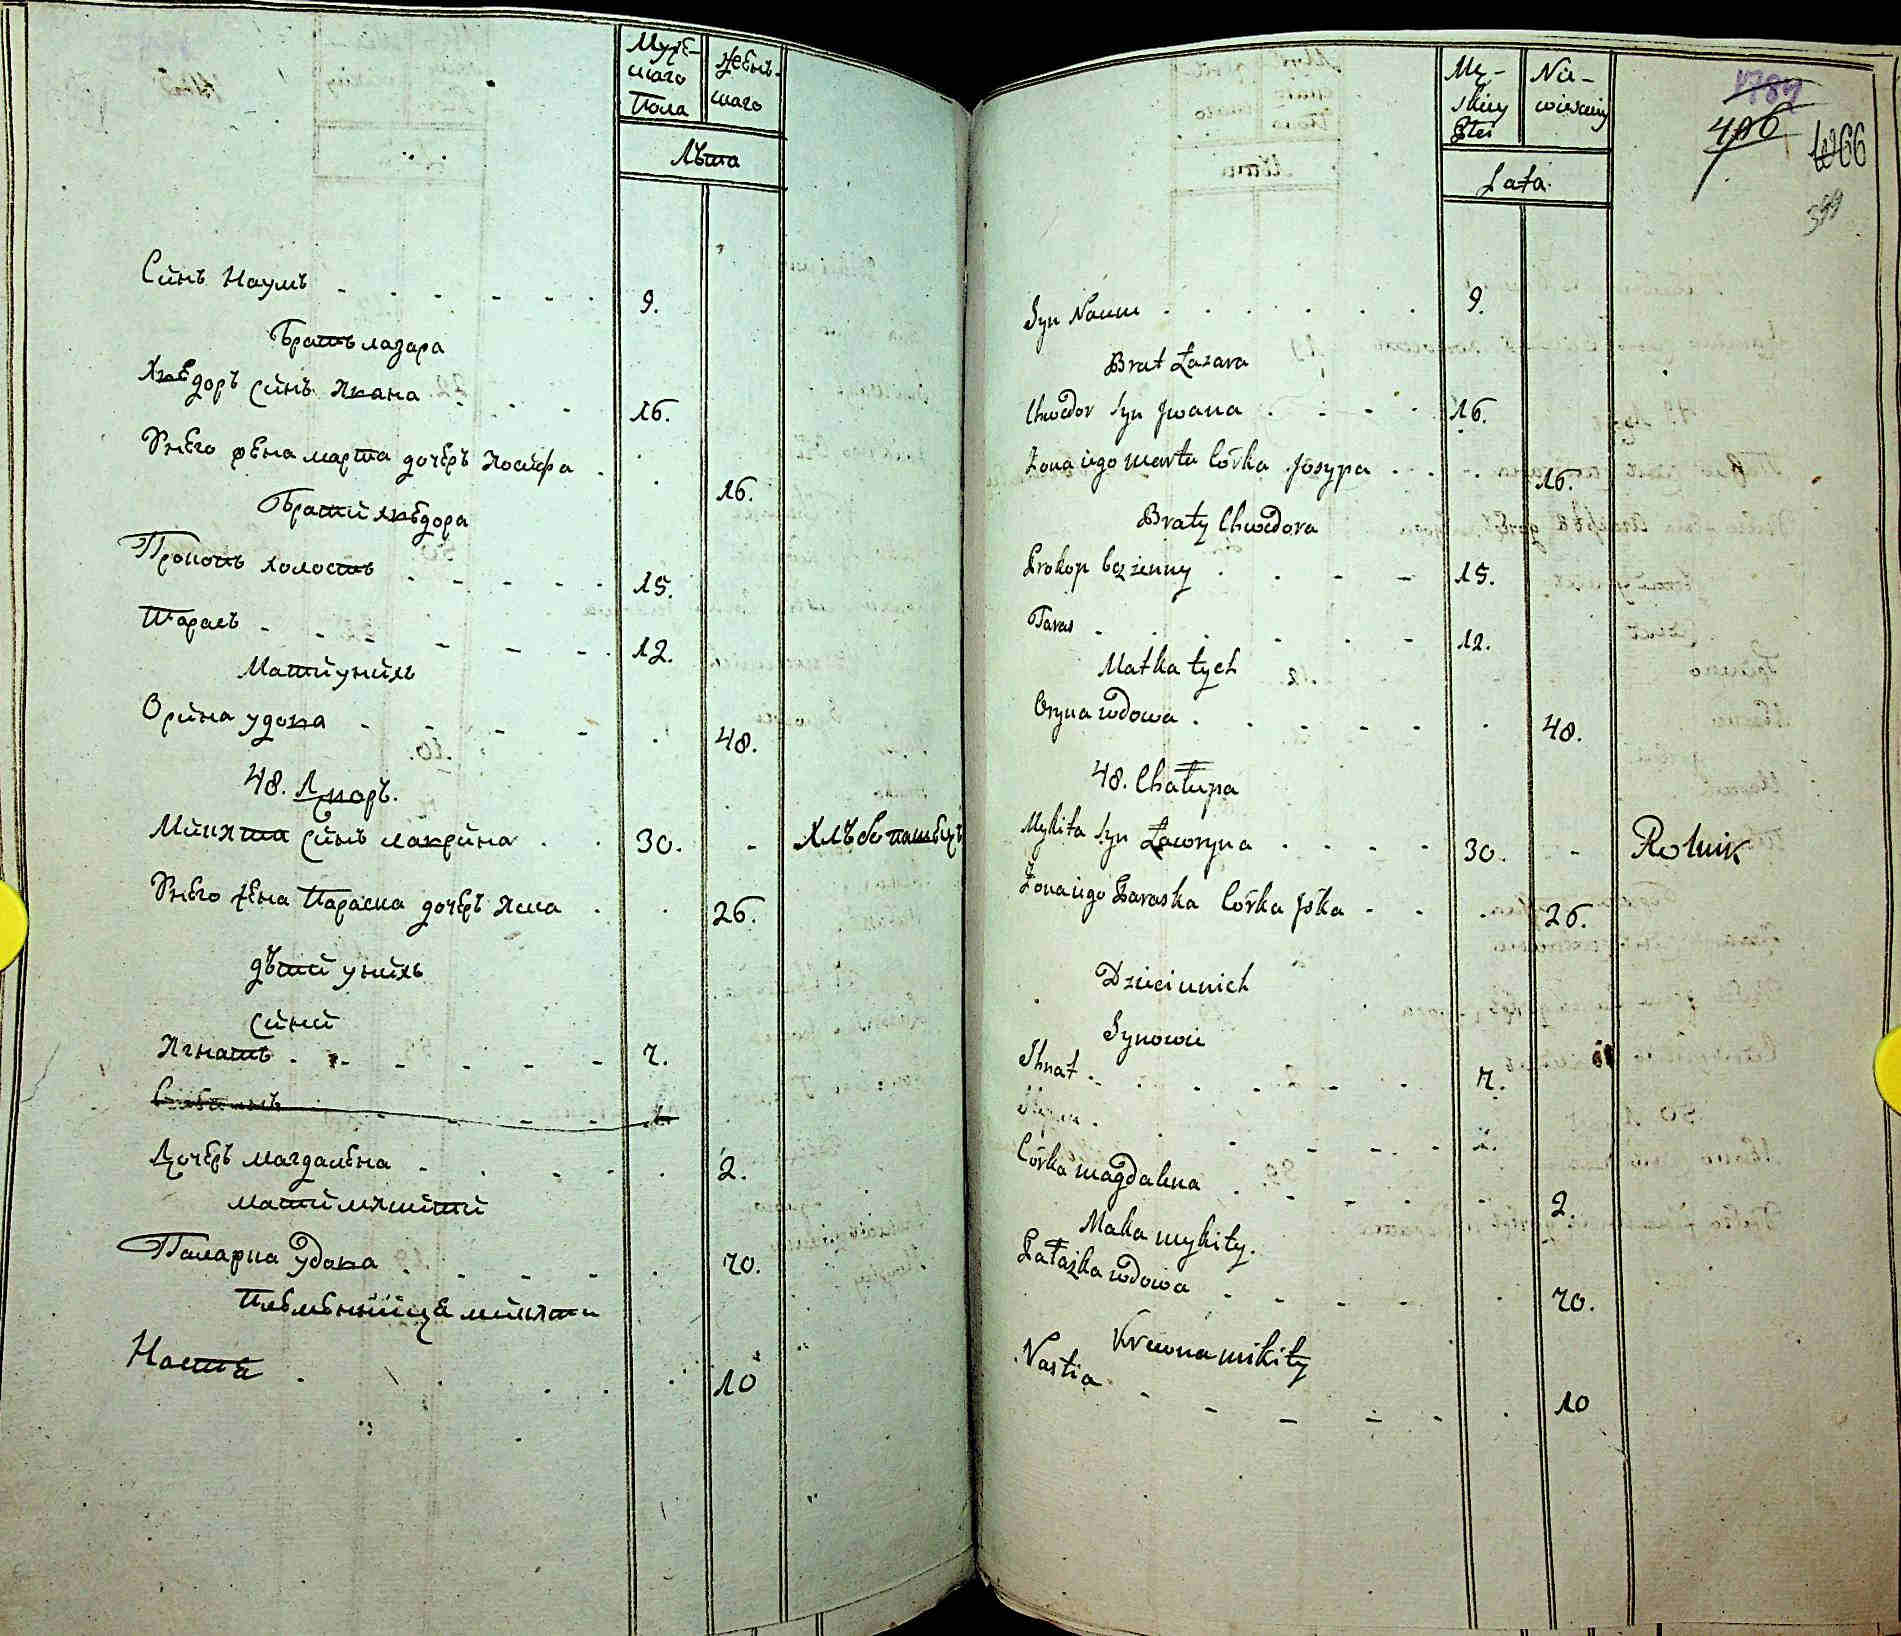 Муже-
скаго
Пола
Женъ-
скаго
Лѣта
Синъ Наумъ 9.
Братъ лазара
Хведоръ синъ Ивана 16.
Унего жена марта дочеръ Иосифа 16.
Брати хведора
Прокопъ холостъ 15.
Тарасъ 12.
Мати унихъ
Орина удова 48.
48. Дворъ.
Микита синъ лаврина 30. - Хлѣбопашецъ
Унего жена Параска дочеръ Яска 26.
дѣти унихъ
сини
Игнатъ 7.
Дочеръ магдалена 2.
мати микити
Палажка удова 70.
Племенница микити
Настя 10
Mę-
skiey
Płci
Nie-
wieściey
Lata
1787
406
399
Syn Naum 9.
Brat Łazara
Chwedor syn Jwana 16.
Żona iego marta Córka Josypa 16.
Braty Chwedora
Prokop bezżenny 15.
Taras 12.
Matka tych
Oryna wdowa 48.
48. Chałupa
Mykita syn Ławryna 30. - Rolnik
Żona iego Paraska Córka Jśka 26.
Dzieci unich
Synowie
Ihnat 7.
Córka magdalena 2.
Matka mykity.
Pałażka wdowa 70.
Krewna mikity
Nastia 10